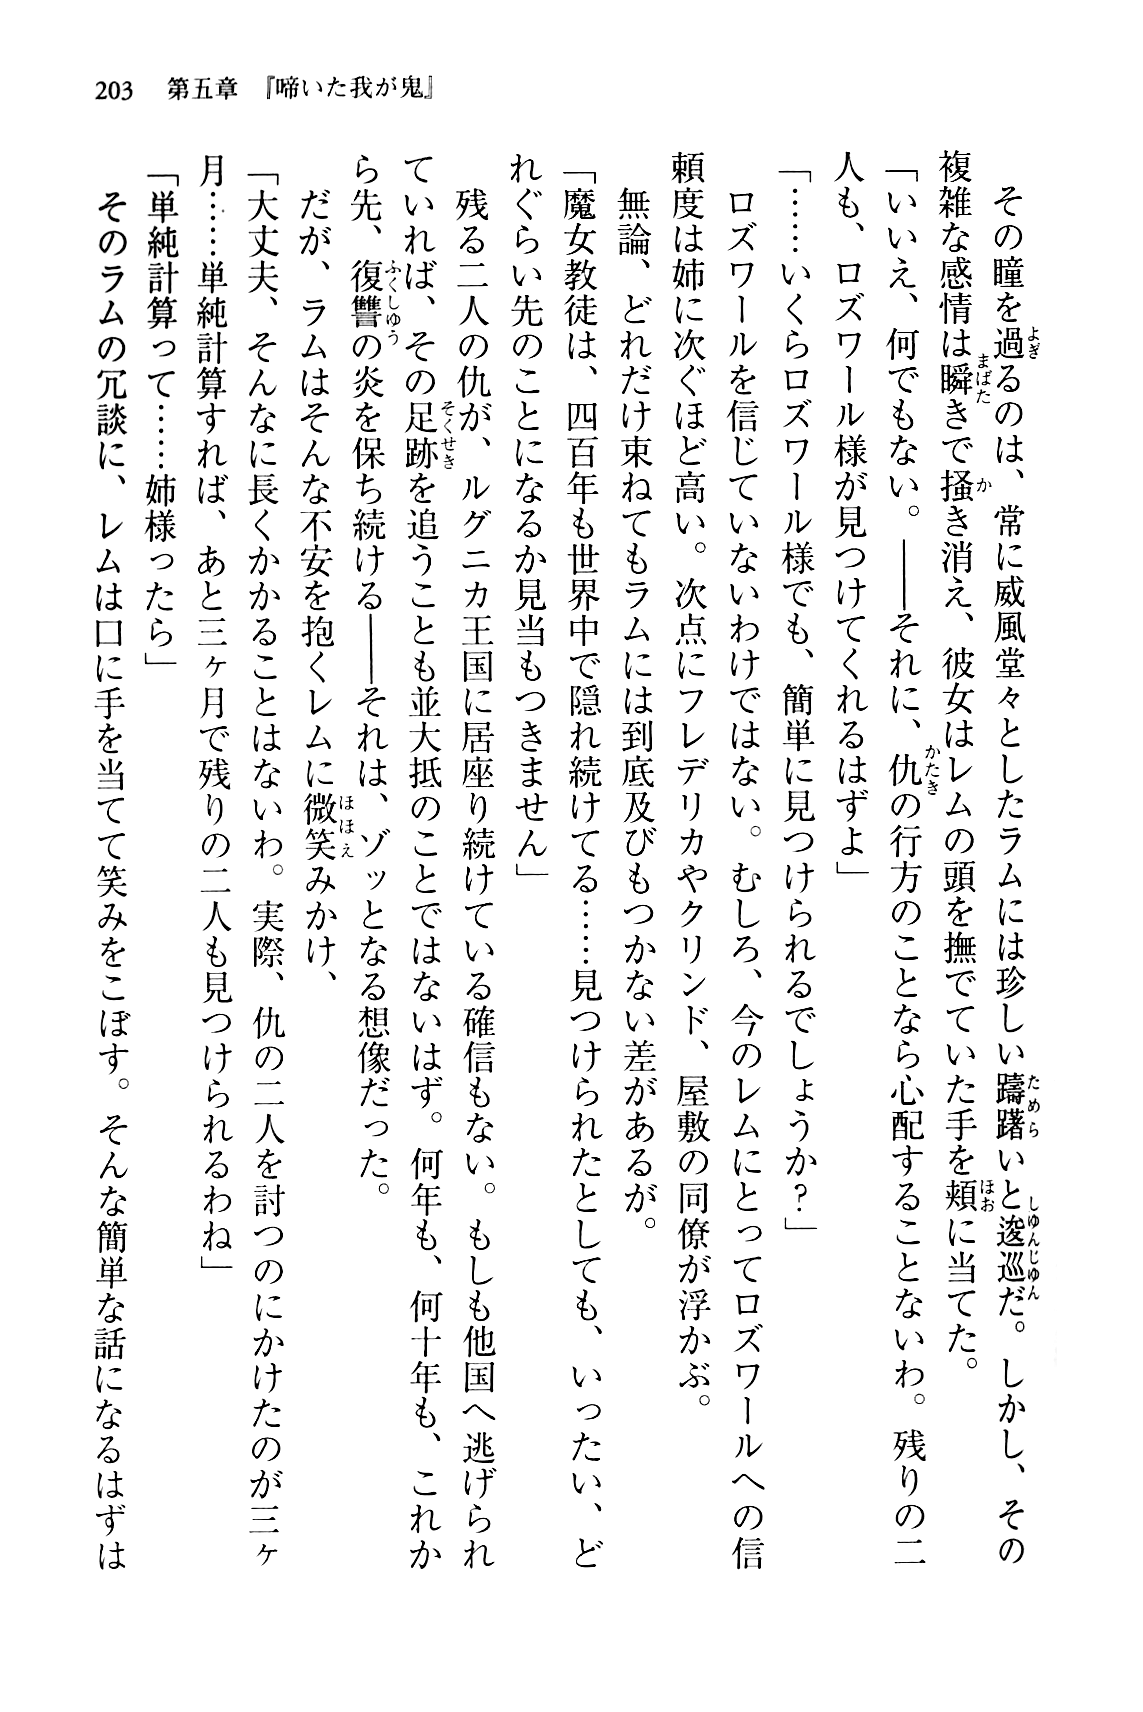 203　第五章　『啼いた我が鬼』
　その瞳を過るのは、常に威風堂々としたラムには珍しい躊躇いと逡巡だ。しかし、その
複雑な感情は瞬きで掻き消え、彼女はレムの頭を撫でていた手を頬に当てた。
「いいえ、何でもない。――それに、仇の行方のことなら心配することないわ。残りの二
人も、ロズワール様が見つけてくれるはずよ」
「……いくらロズワール様でも、簡単に見つけられるでしょうか？」
　ロズワールを信じていないわけではない。むしろ、今のレムにとってロズワールへの信
頼度は姉に次ぐほど高い。次点にフレデリカやクリンド、屋敷の同僚が浮かぶ。
　無論、どれだけ束ねてもラムには到底及びもつかない差があるが。
「魔女教徒は、四百年も世界中で隠れ続けてる……見つけられたとしても、いったい、ど
れぐらい先のことになるか見当もつきません」
　残る二人の仇が、ルグニカ王国に居座り続けている確信もない。もしも他国へ逃げられ
ていれば、その足跡を追うことも並大抵のことではないはず。何年も、何十年も、これか
ら先、復讐の炎を保ち続ける――それは、ゾッとなる想像だった。
　だが、ラムはそんな不安を抱くレムに微笑みかけ、
「大丈夫、そんなに長くかかることはないわ。実際、仇の二人を討つのにかけたのが三ヶ
月……単純計算すれば、あと三ヶ月で残りの二人も見つけられるわね」
「単純計算って……姉様ったら」
　そのラムの冗談に、レムは口に手を当てて笑みをこぼす。そんな簡単な話になるはずは